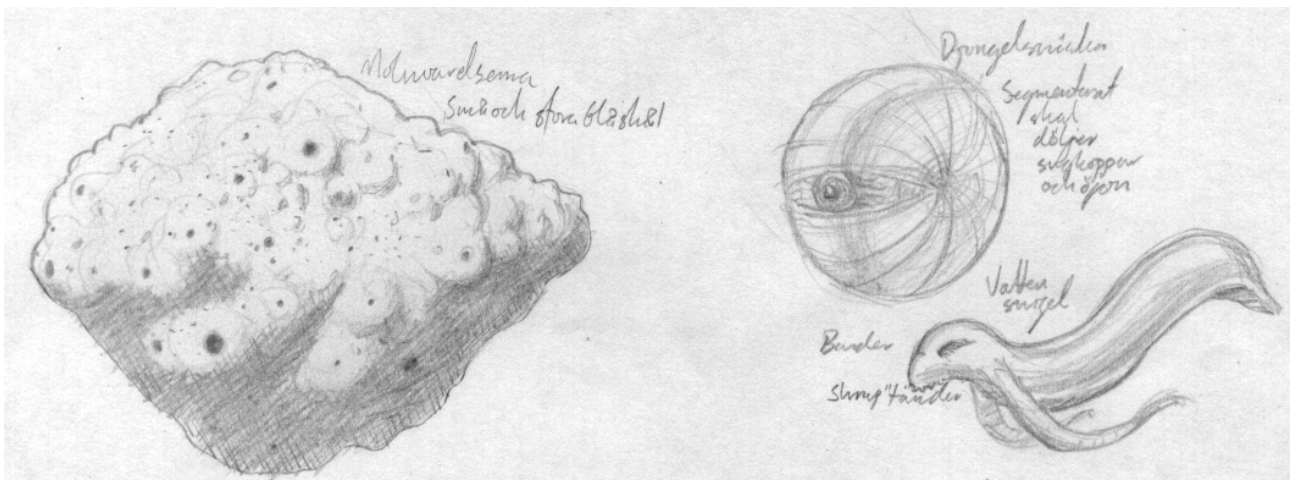 Molnvarelserna
Små och stora blåshål
Djungelsnäckan
Segmenterat
skal
döljer
sugkoppar
och ögon
Vatten
snigel
Barder
"tänder"